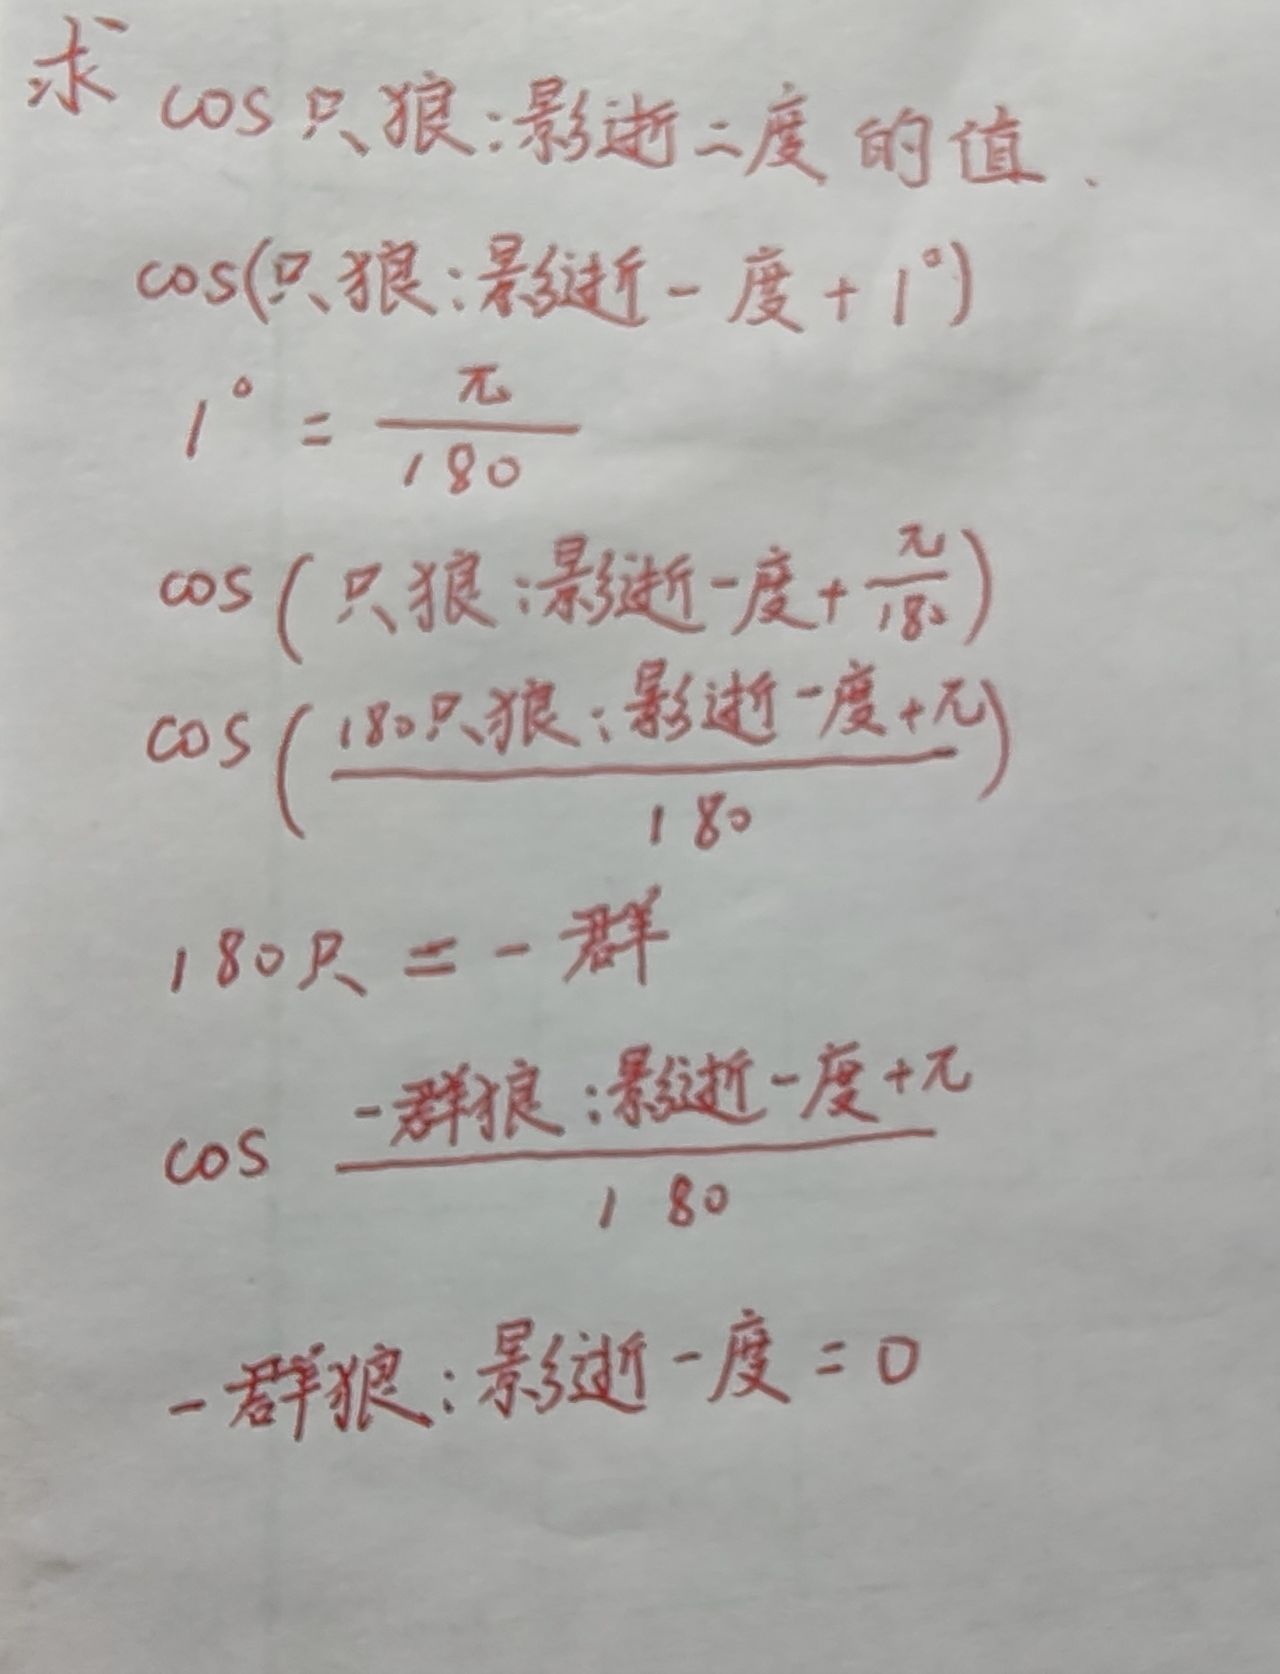 求 cos只狼:影逝二度的值.
cos(只狼:影逝一度+1°)
1° = π/180
cos(只狼:影逝一度+π/180)
cos(180只狼:影逝一度+π/180)
180只 = 一群
cos 一群狼:影逝一度+π/180
一群狼:影逝一度=0